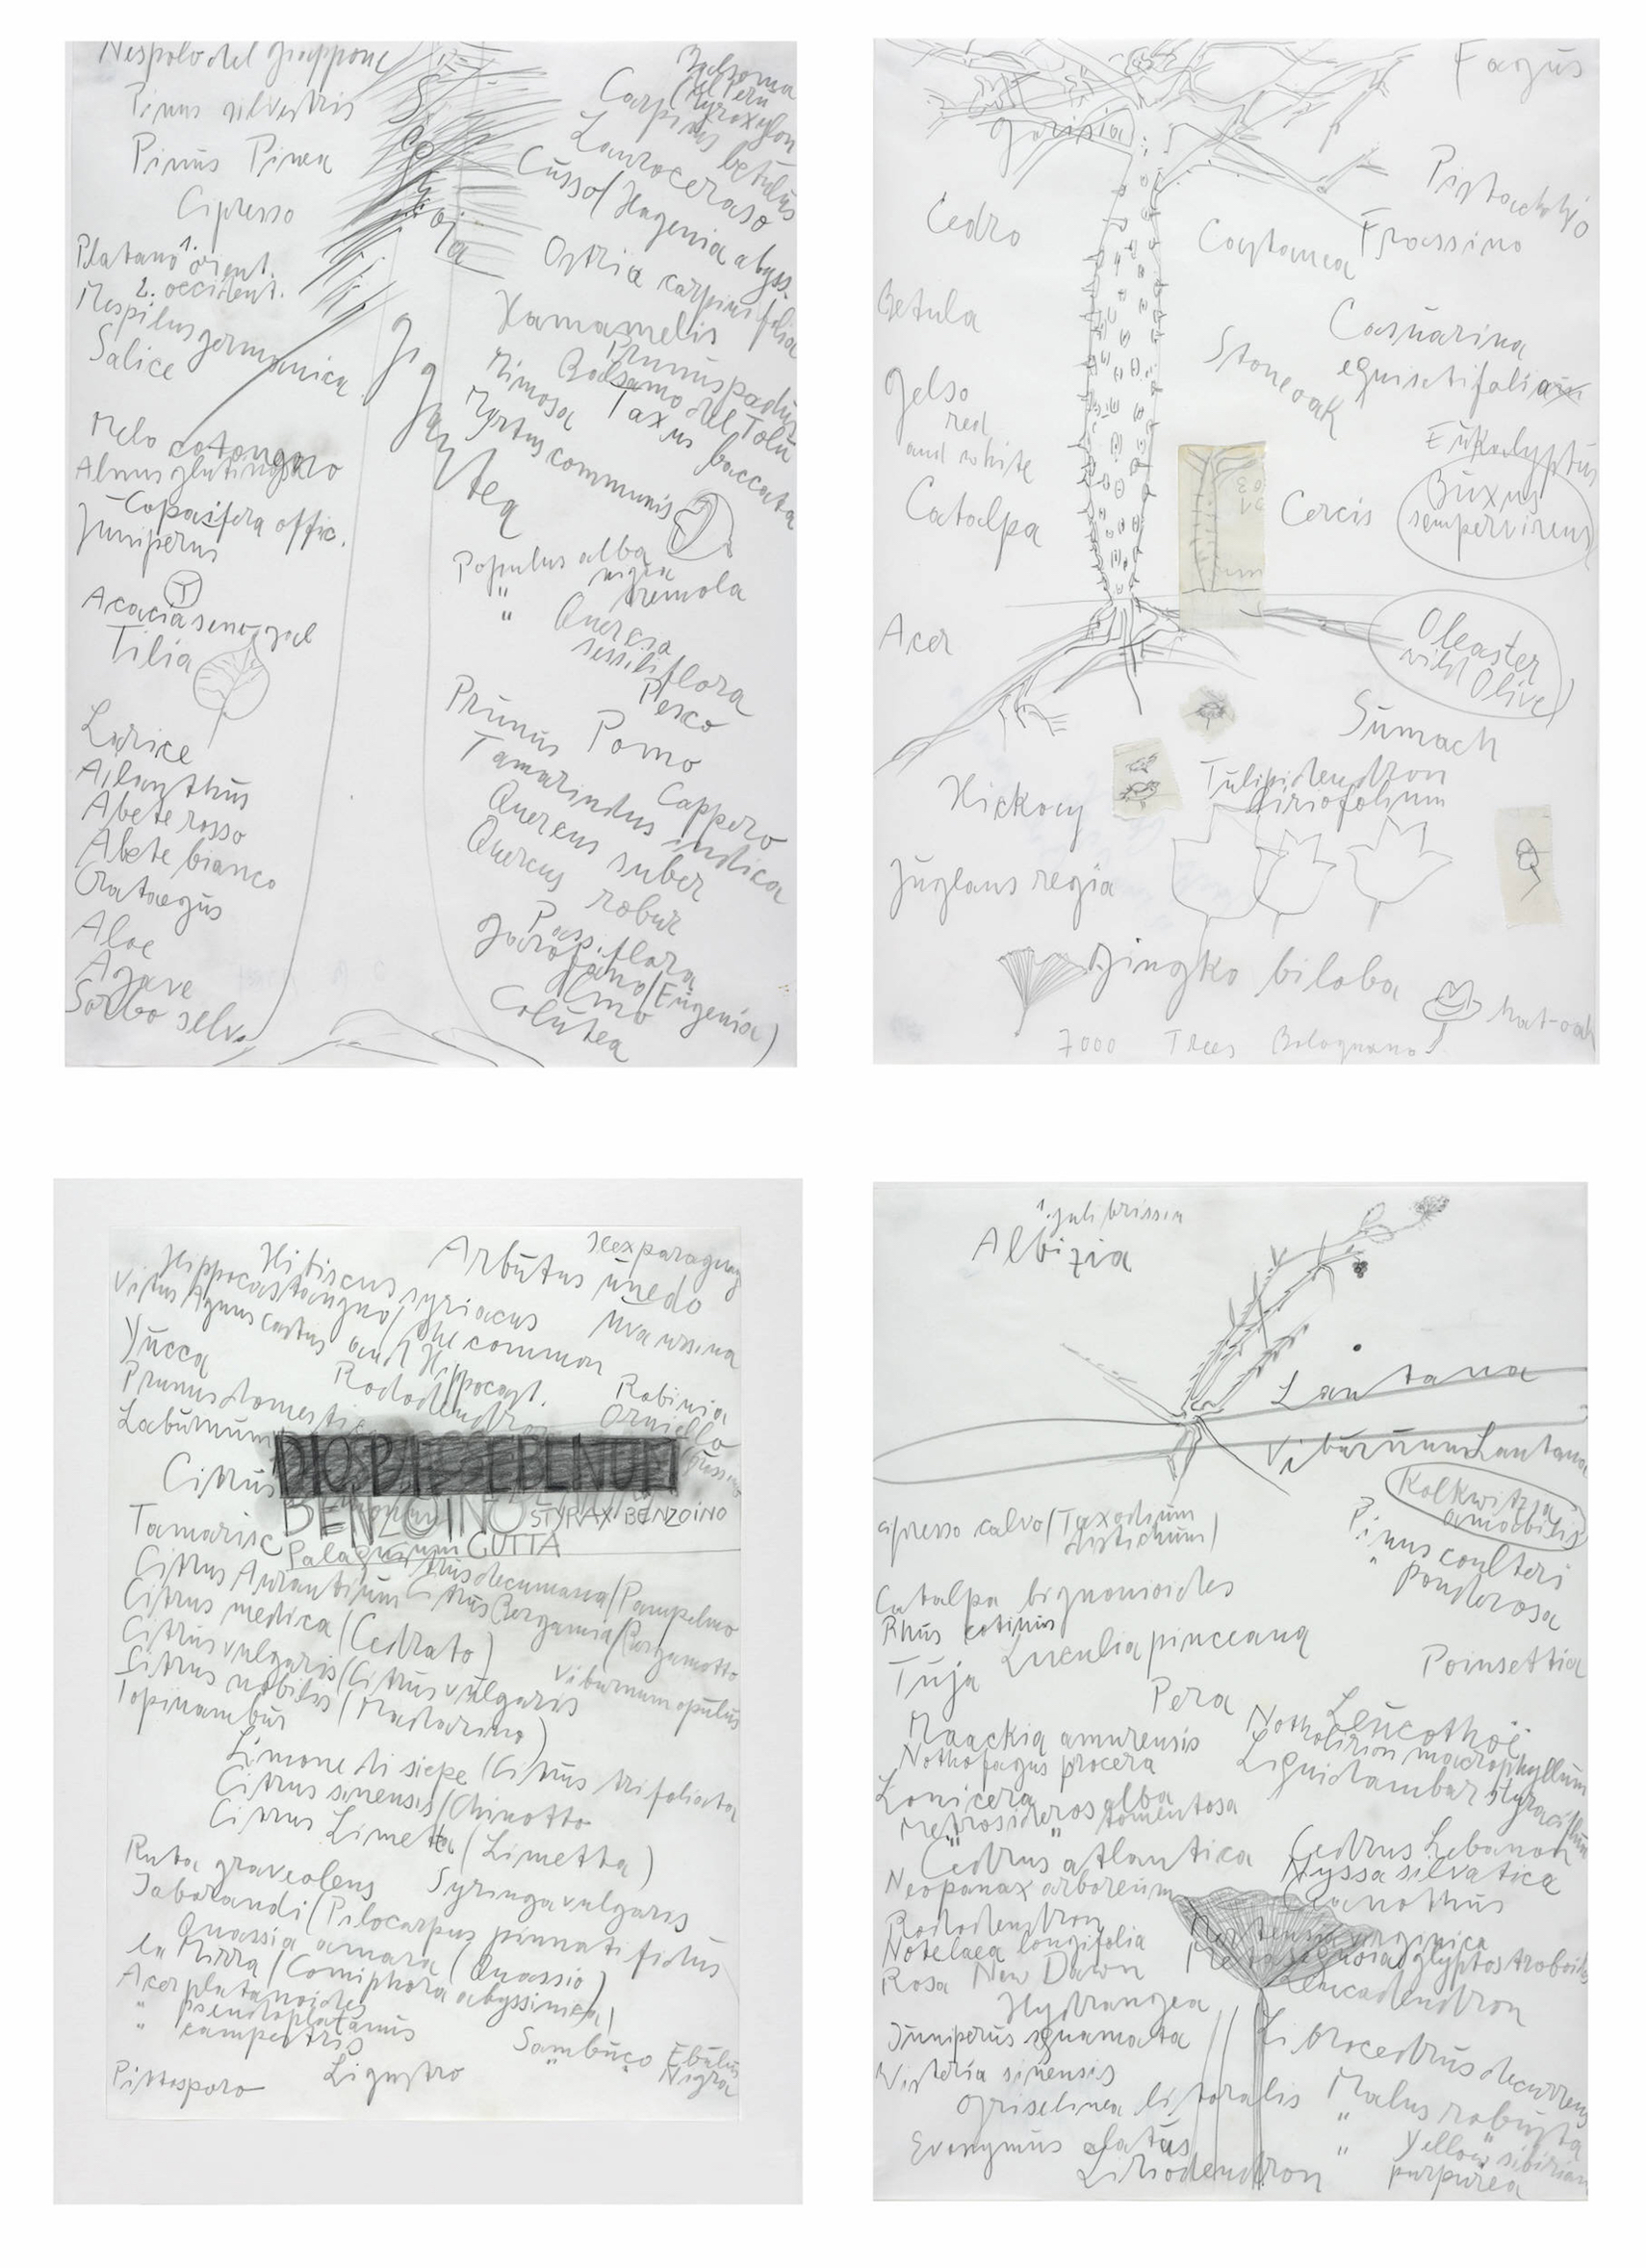 Nespolo del Giappone
Pinus silvestris
Pinus Pinea
Cipresso
Platano 1. orient.
2. occident.
Mespilus germanica
Salice
Melo cotongaro
Alnus glutinosa
Copaifera offic.
Juniperus
Acacia senegal
Tilia
Larice
Ailanthus
Abete rosso
Abete bianco
Crataegus
Aloe
Agave
Sorbo selv.
Sequoja
Giganteq
Balsama
del Peru
Myroxylon
Carpinus betulus
Lauroceraso
Cusso/Hagenia abyss.
Ostria carpinifolia
Hamamelis
Prunus padus
Balsamo del Tolu
Mimosa
Taxus baccata
Myrtus communis
Populus alba
" nigra
" tremola
Quercia
sessiliflora
Pesco
Prunus
Pomo
Cappero
Tamarindus indica
Quercus suber
Quercus robur
Passiflora
Garofano/Eugenia)
Olmo
Colutea
Fagus
Gorisia
Pistachchjo
Cedro
Castanea
Frassino
Betula
Casuarina
equisetifolia
Stoneoak
Gelso
red
and white
Eukalyptus
Buxus
sempervirens
Catalpa
Cercis
Acer
Oleaster
wild
Olive
Sumach
Hickory
Tulipidendron
liriofolium
Juglans regia
Gingko biloba
hat-oak
7000 Trees Bolognano
Ilex paraguay
Hibiscus syriacus
Arbutus unedo
Hippocastangno/the common
Uva ursina
Vitus Agnus castus and Hippocast.
Yucca
Rododendron
Robinia
Prunus domestic
Orniello
Laburnum
DIOSPI EBENUM
Citrus
BENZOINO STYRAX BENZOINO
Tamarisc
Palaquium GUTTA
Citrus decumana/Pampelmo
Citrus Aurantium Citrus Bergamia/Bergamotto
Citrus medica (Cedrato)
Citrus vulgaris (Citrus vulgaris
Viburnum opulus
Citrus nobilis (Madarino)
Topinambur
Limone di siepe (Citrus trifoliata
Citrus sinensis/Chinotto
Citrus Limetta (Limetta)
Ruta graveolens Syringa vulgaris
Jaborandi (Pilocarpus pinnatifidus
Quassia amara (Quassio)
la Mirra (Comiphora abyssinica)
Acer platanoides
" pseudoplatanus
" campestris
Sambuco Ebulus
" Nigra
Pittosporo Ligustro
1. julibrissin
Albizia
Lantana
Viburnum Lantana
Kolkwitzia
amabilis
cipresso calvo (Taxodium
distichum)
Pinus coulteri
" ponderosa
Catalpa bignonioides
Rhus cotinus
Luculia pinceana
Tuja
Poinsettia
Pera
Leucothoë
Maackia amurensis
Notholirion macrophyllum
Nothofagus procera
Liquidambar styraciflum
Lonicera
Metrosideros alba
" tomentosa
Cedrus atlantica
Cedrus Lebanon
Nyssa silvatica
Neopanax arboreum
Ceanothus
Rododendron
Mertensia virginica
Notelaea longifolia
Metasequoia glyptostroboides
Rosa New Dawn
Leucadendron
Hydrangea
Juniperus squamata
Librocedrus decurrens
Wisteria sinensis
Griselinea litoralis
Malus robusta
" Yellow sibirian
" purpurea
Evonymus alatus
Liriodendron